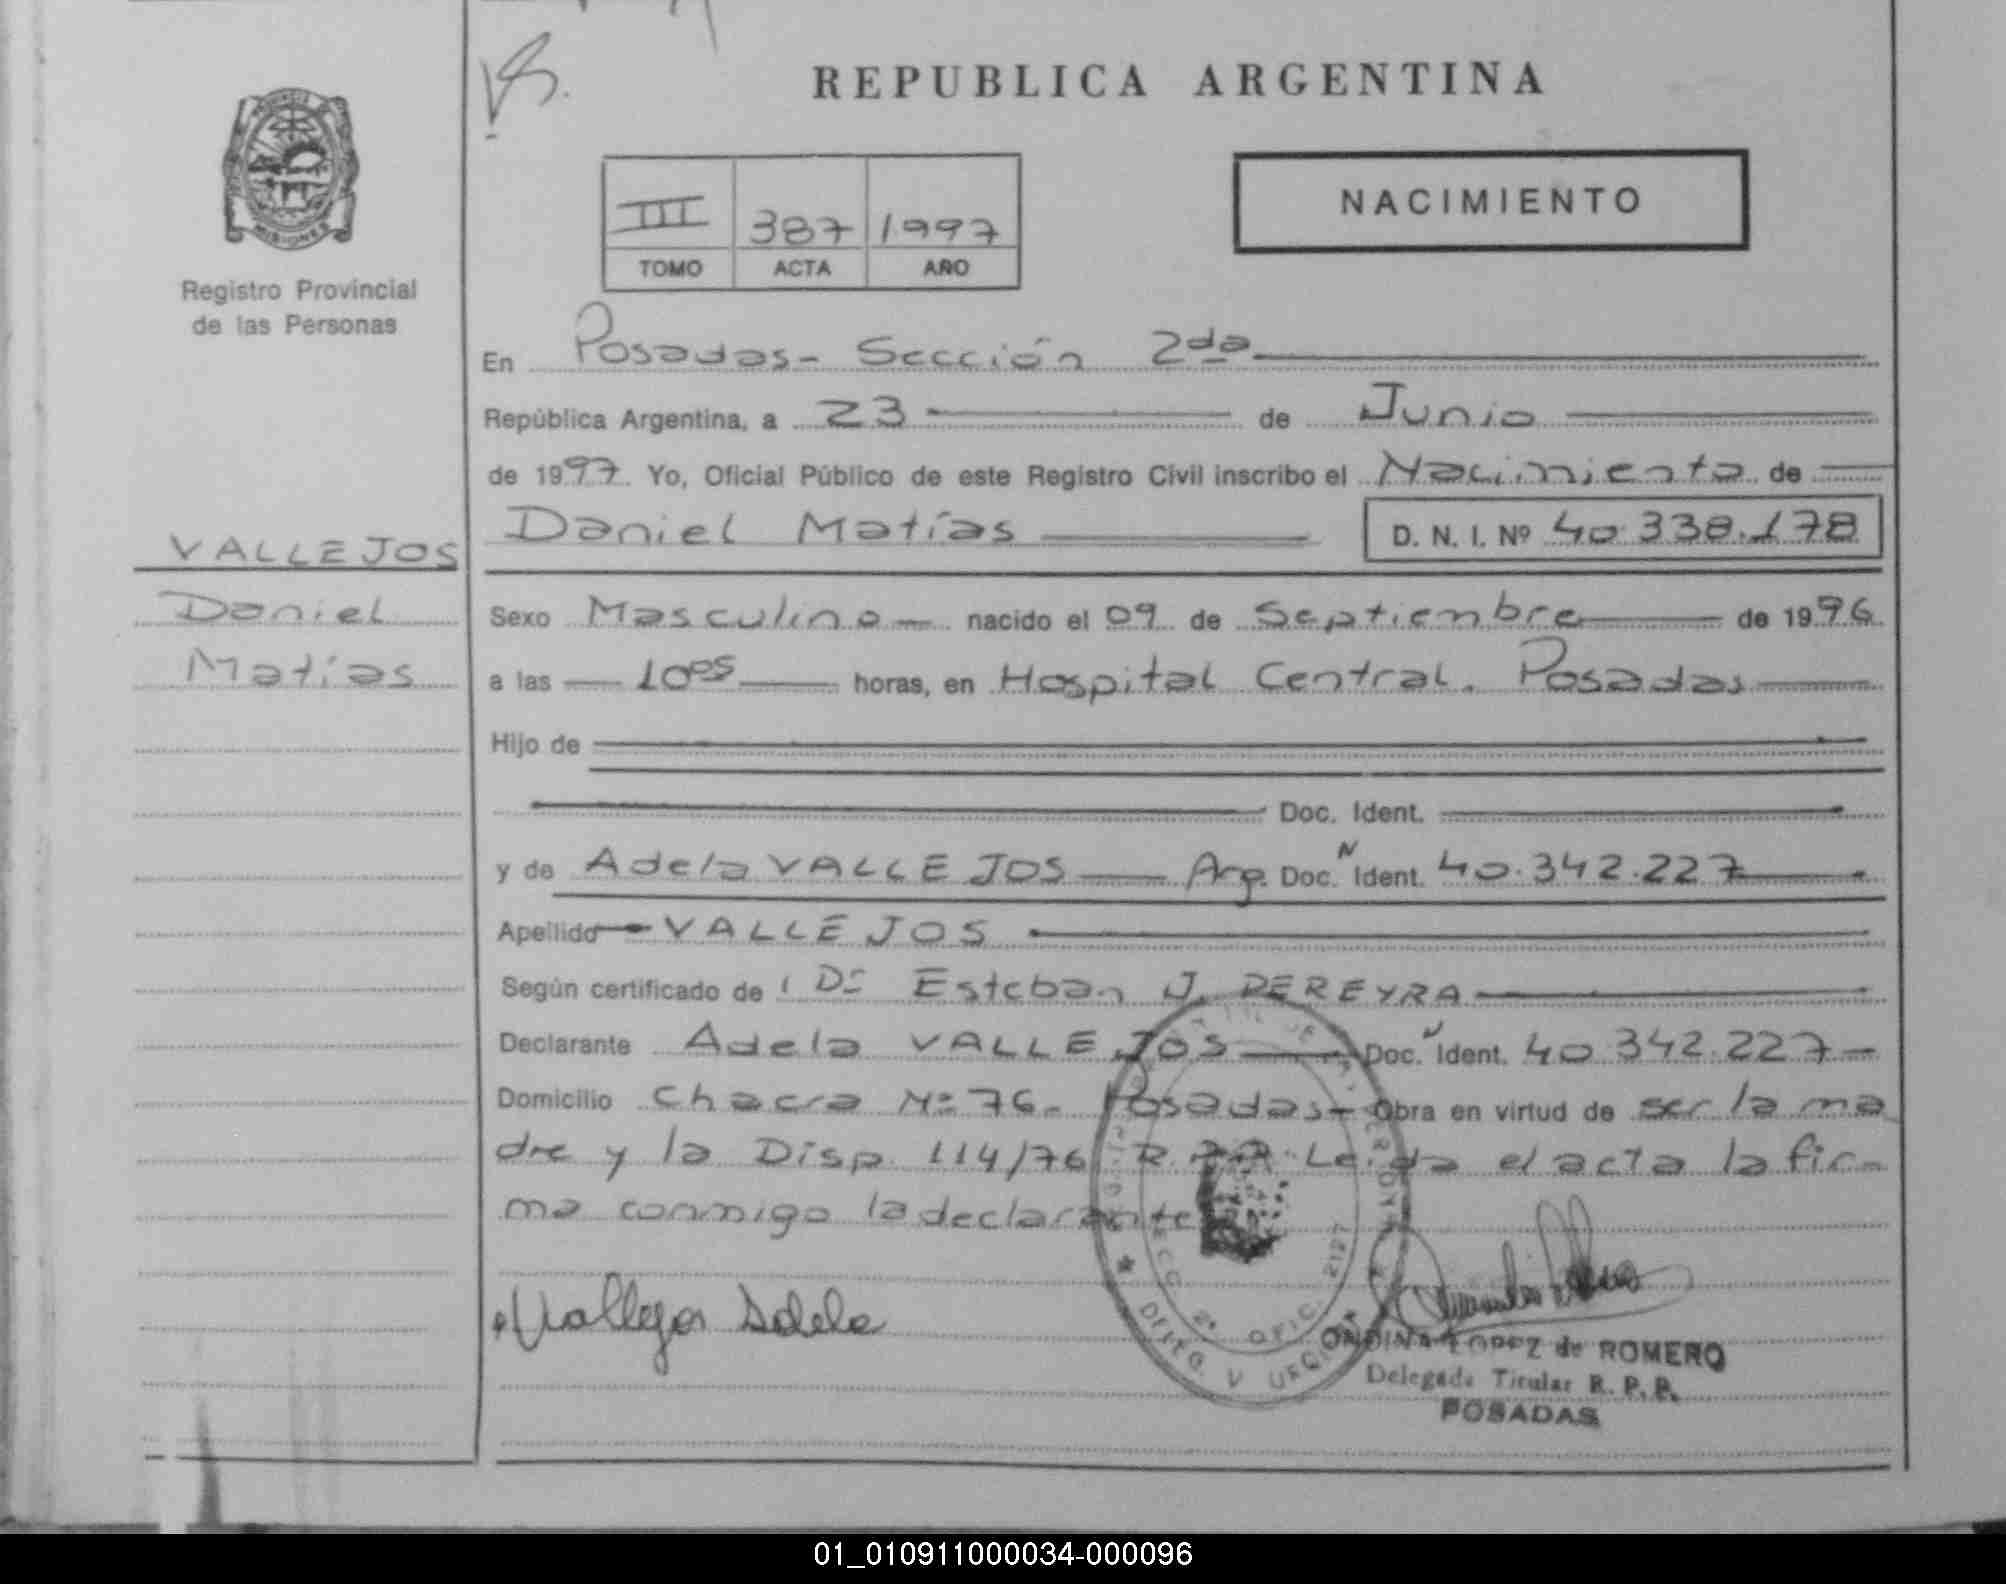 REPUBLICA ARGENTINA
PROVINCIA DE MISIONES
Registro Provincial
de las Personas
III 387 1997
TOMO ACTA AÑO
NACIMIENTO
En Posadas- Sección 2da
República Argentina, a 23 de Junio
de 1997. Yo, Oficial Público de este Registro Civil inscribo el Nacimiento de
Daniel Matías D. N. I. Nº 40.338.178
VALLEJOS
Daniel
Matías
Sexo Masculino nacido el 09 de Septiembre de 1996
a las 10 05 horas, en Hospital Central. Posadas
Hijo de
Doc. Ident.
y de Adela VALLEJOS Arg. Doc. N Ident. 40.342.227
Apellido VALLEJOS
Según certificado de Dr Esteban J. PEREYRA
Declarante Adela VALLEJOS Doc. N Ident. 40.342.227
Domicilio Chacra Nº 76- Posadas- Obra en virtud de ser la ma
dre y la Disp. 114/76 R.P.P. Leída el acta la fir-
ma conmigo la declarante
Vallejos Adela
SECC. 2ª OFIC. 2127
DPTO.
ONDINA LOPEZ de ROMERO
Delegada Titular R. P. P.
POSADAS
01_010911000034-000096